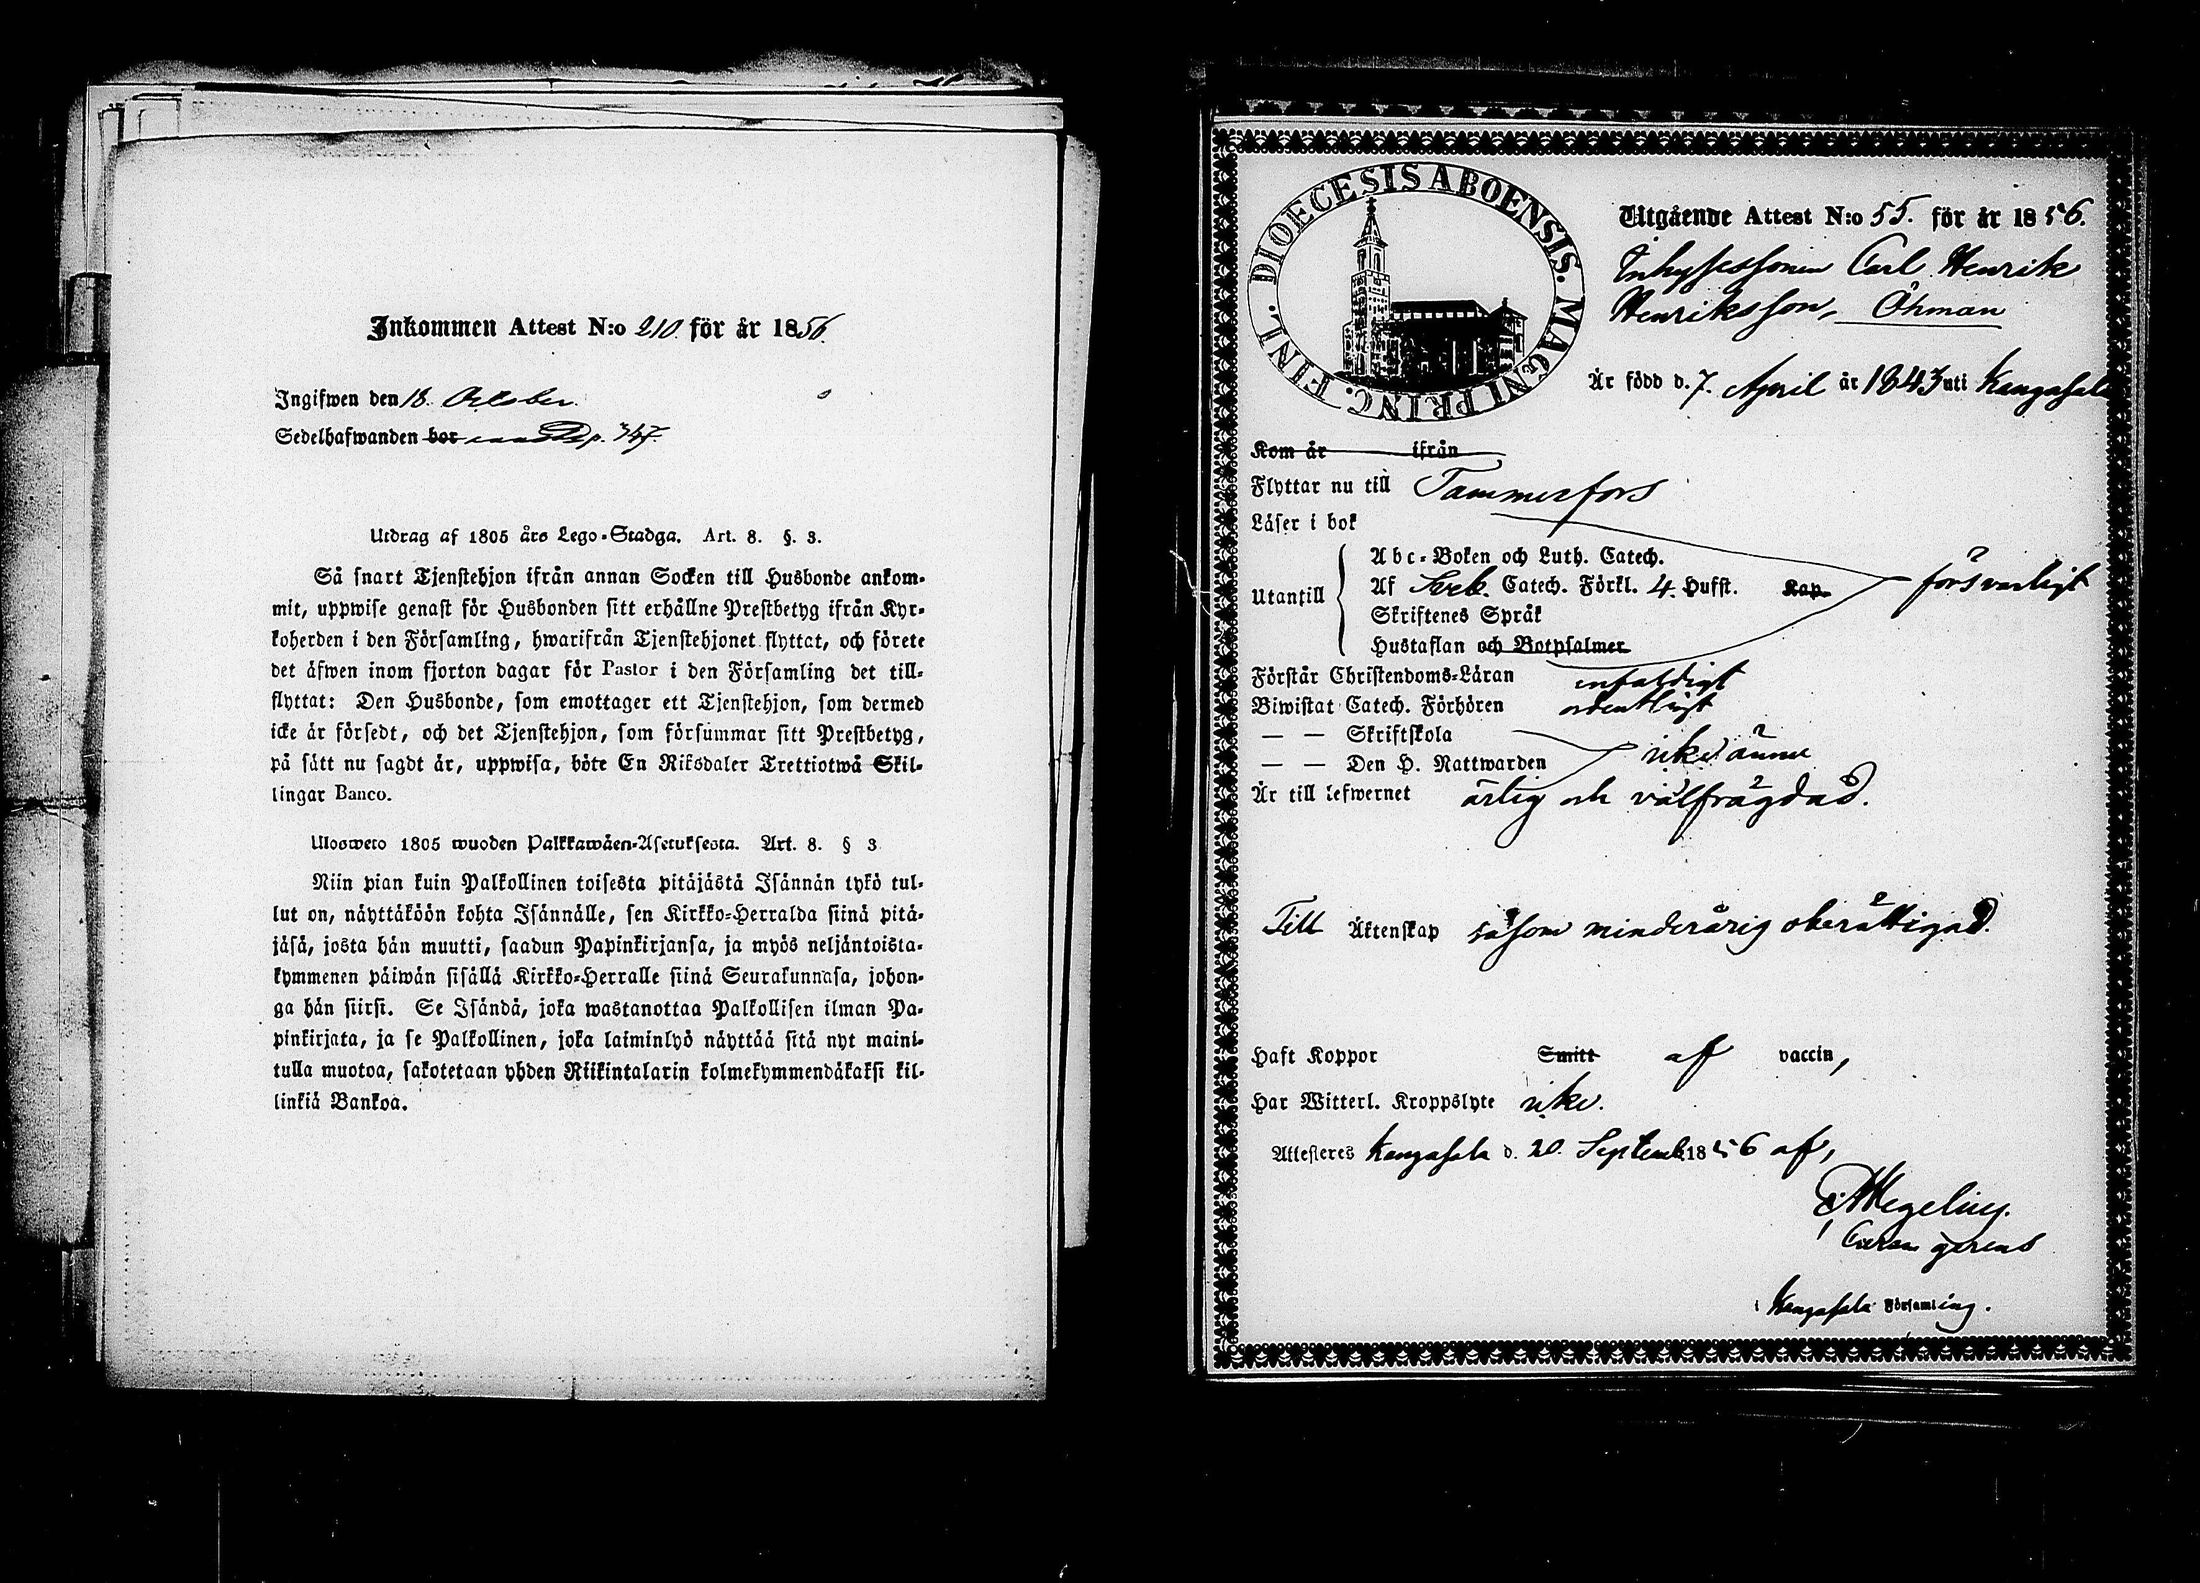 Inkommen Attest N:o 210. för år 1856.
Ingifwen den 18. October.
Sedelhafwanden bor p. 347.
Utdrag af 1805 års Lego-Stadga. Art. 8. §. 3.
Så snart Tjenstehjon ifrån annan Socken till Husbonde ankom-
mit, uppwise genast för Husbonden sitt erhållne Prestbetyg ifrån Kyr-
koherden i den Församling, hwarifrån Tjenstehjonet flyttat, och förete
det äfwen inom fjorton dagar för Pastor i den Församling det till-
flyttat: Den Husbonde, som emottager ett Tjenstehjon, som dermed
icke är försedt, och det Tjenstehjon, som försummar sitt Prestbetyg,
på sätt nu sagdt är, uppwisa, böte En Riksdaler Trettiotwå Skil-
lingar Banco.
Ulosweto 1805 wuoden Palkkawäen-Asetuksesta. Art. 8. § 3
Niin pian kuin Palkollinen toisesta pitäjästä Isännän tykö tul-
lut on, näyttäköön kohta Isännälle, sen Kirkko-Herralda siinä pitä-
jäsä, josta hän muutti, saadun Papinkirjansa, ja myös neljäntoista-
kymmenen päiwän sisällä Kirkko-Herralle siinä Seurakunnasa, johon-
ga hän siirsi. Se Isändä, joka wastanottaa Palkollisen ilman Pa-
pinkirjata, ja se Palkollinen, joka laiminlyö näyttää sitä nyt maini-
tulla muotoa, sakotetaan yhden Riikintalarin kolmekymmendäkaksi kil-
linkiä Bankoa.
DIOECESIS ABOENSIS. MAGNI PRINC. FINL.
Utgående Attest N:o 55. för år 1856.
Inhysessonen Carl Henrik
Henriksson, Öhman
Är född d. 7. April år 1843 uti Kangasala
Kom år ifrån
Flyttar nu till Tammerfors
Läser i bok
Utantill
Abc-Boken och Luth. Catech.
Af Sveb. Catech. Förkl. 4. Hufst. Kap. försvarligt
Skriftenes Språk
Hustaflan och Botpsalmer
Förstår Christendoms-Läran enfaldigt
Biwistat Catech. Förhören ordentligt
— — Skriftskola
— — Den H. Nattwarden icke ännu
Är till lefwernet ärlig och välfrägdad.
Till Äktenskap såsom minderårig oberättigad.
Haft Koppor Smitt af vaccin,
Har Witterl. Kroppslyte icke.
Attesteres Kangasala d. 20. Septemb. 1856 af,
Curam gerens
i Kangasala Församling.